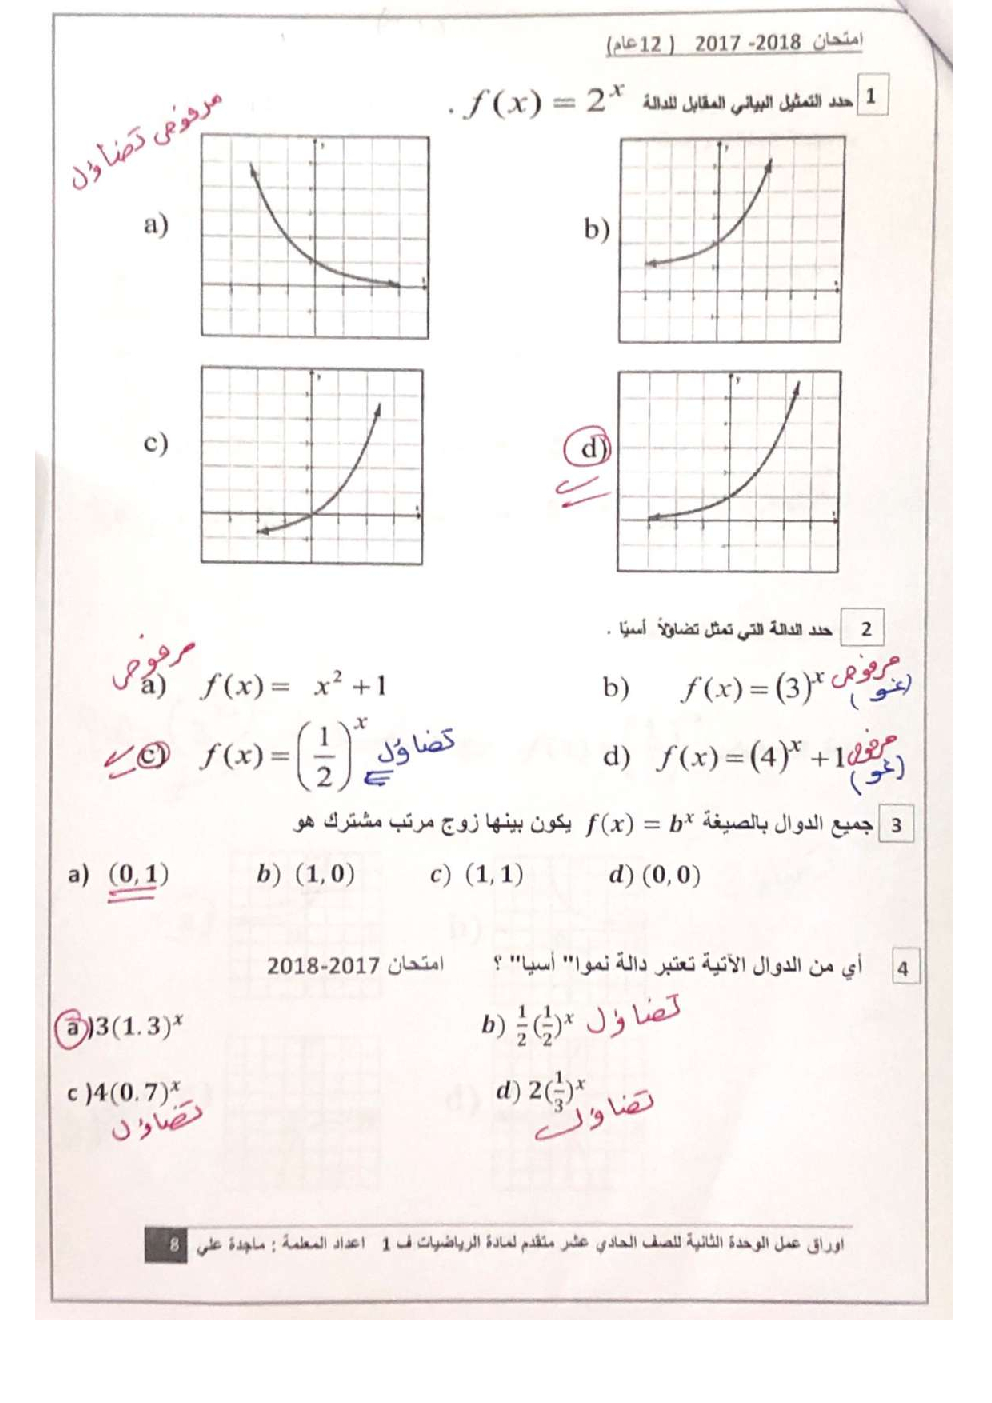 امتحان 2018- 2017 ( 12عام)
1 حدد التمثيل البياني المقابل للدالة f(x) = 2^x .
مرفوض تضاؤل
a)
b)
c)
d)
2 حدد الدالة التي تمثل تضاؤلاً أسيًا .
a) f(x) = x² + 1 مرفوض
b) f(x) = (3)^x مرفوض (نمو)
c) f(x) = (1/2)^x تضاؤل
d) f(x) = (4)^x + 1 مرفوض (نمو)
3 جميع الدوال بالصيغة f(x) = b^x يكون بينها زوج مرتب مشترك هو
a) (0, 1) b) (1, 0) c) (1, 1) d) (0, 0)
4 أي من الدوال الآتية تعتبر دالة نموا" أسيا" ؟ امتحان 2017-2018
a )3(1.3)^x b) 1/2(1/2)^x تضاؤل
c )4(0.7)^x d) 2(1/3)^x
تضاؤل تضاؤل
اوراق عمل الوحدة الثانية للصف الحادي عشر متقدم لمادة الرياضيات ف 1 اعداد المعلمة : ماجدة علي 8